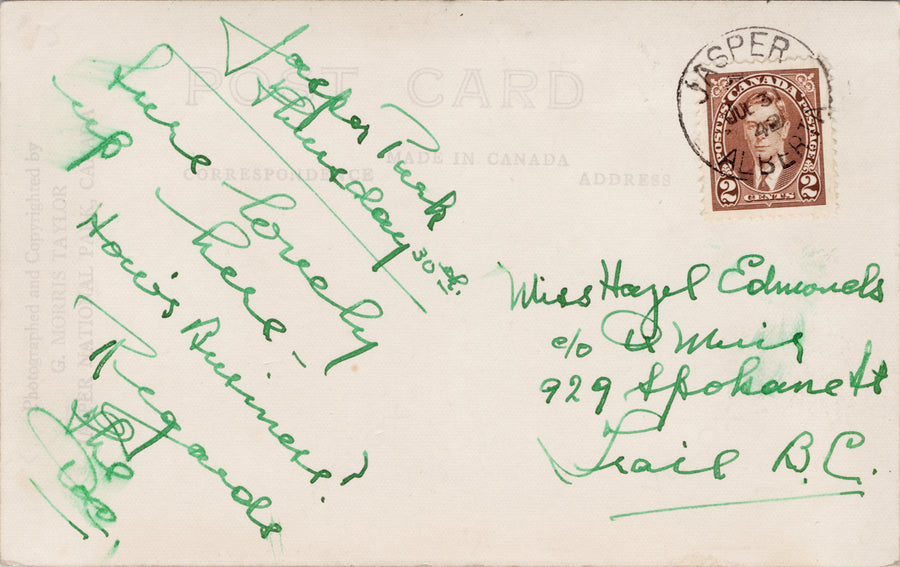 POST CARD
MADE IN CANADA
CORRESPONDENCE
ADDRESS
Photographed and Copyrighted by
G. MORRIS TAYLOR
JASPER NATIONAL PARK, CANADA
Jasper Park
Thursday 30th.
Sure lovely
up here –
How's Business?
Regards
JASPER
JUL 31
42
ALBERTA
CANADA
POSTES POSTAGE
2 CENTS 2
Miss Hazel Edmonds
c/o Muir
929 Spokane St
Trail B.C.